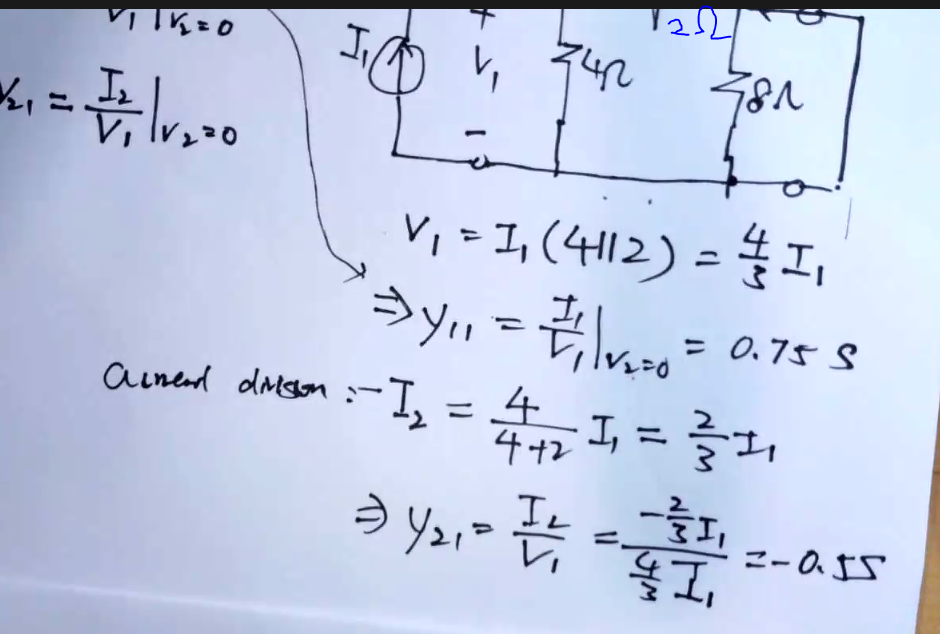 V₁ |V₂=0
y₂₁ = I₂/V₁ |V₂=0
I₁
+
V₁
-
4Ω
2Ω
8Ω
V₁ = I₁(4||2) = 4/3 I₁
⇒ y₁₁ = I₁/V₁ |V₂=0 = 0.75 S
Current division :- I₂ = 4/(4+2) I₁ = 2/3 I₁
⇒ y₂₁ = I₂/V₁ = (-2/3 I₁)/(4/3 I₁) = -0.5S